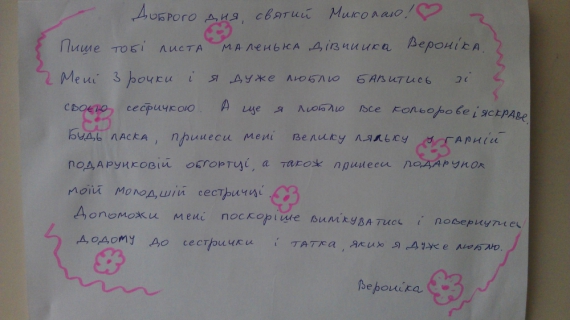 Доброго дня, святий Миколаю!
Пише тобі листа маленька дівчинка Вероніка.
Мені 3 рочки і я дуже люблю бавитись зі
своєю сестричкою. А ще я люблю все кольорове і яскраве.
Будь ласка, принеси мені велику ляльку у гарній
подарунковій обгортці, а також принеси подарунок
моїй молодшій сестричці.
Допоможи мені поскоріше вилікуватись і повернутись
додому до сестрички і татка, яких я дуже люблю.
Вероніка